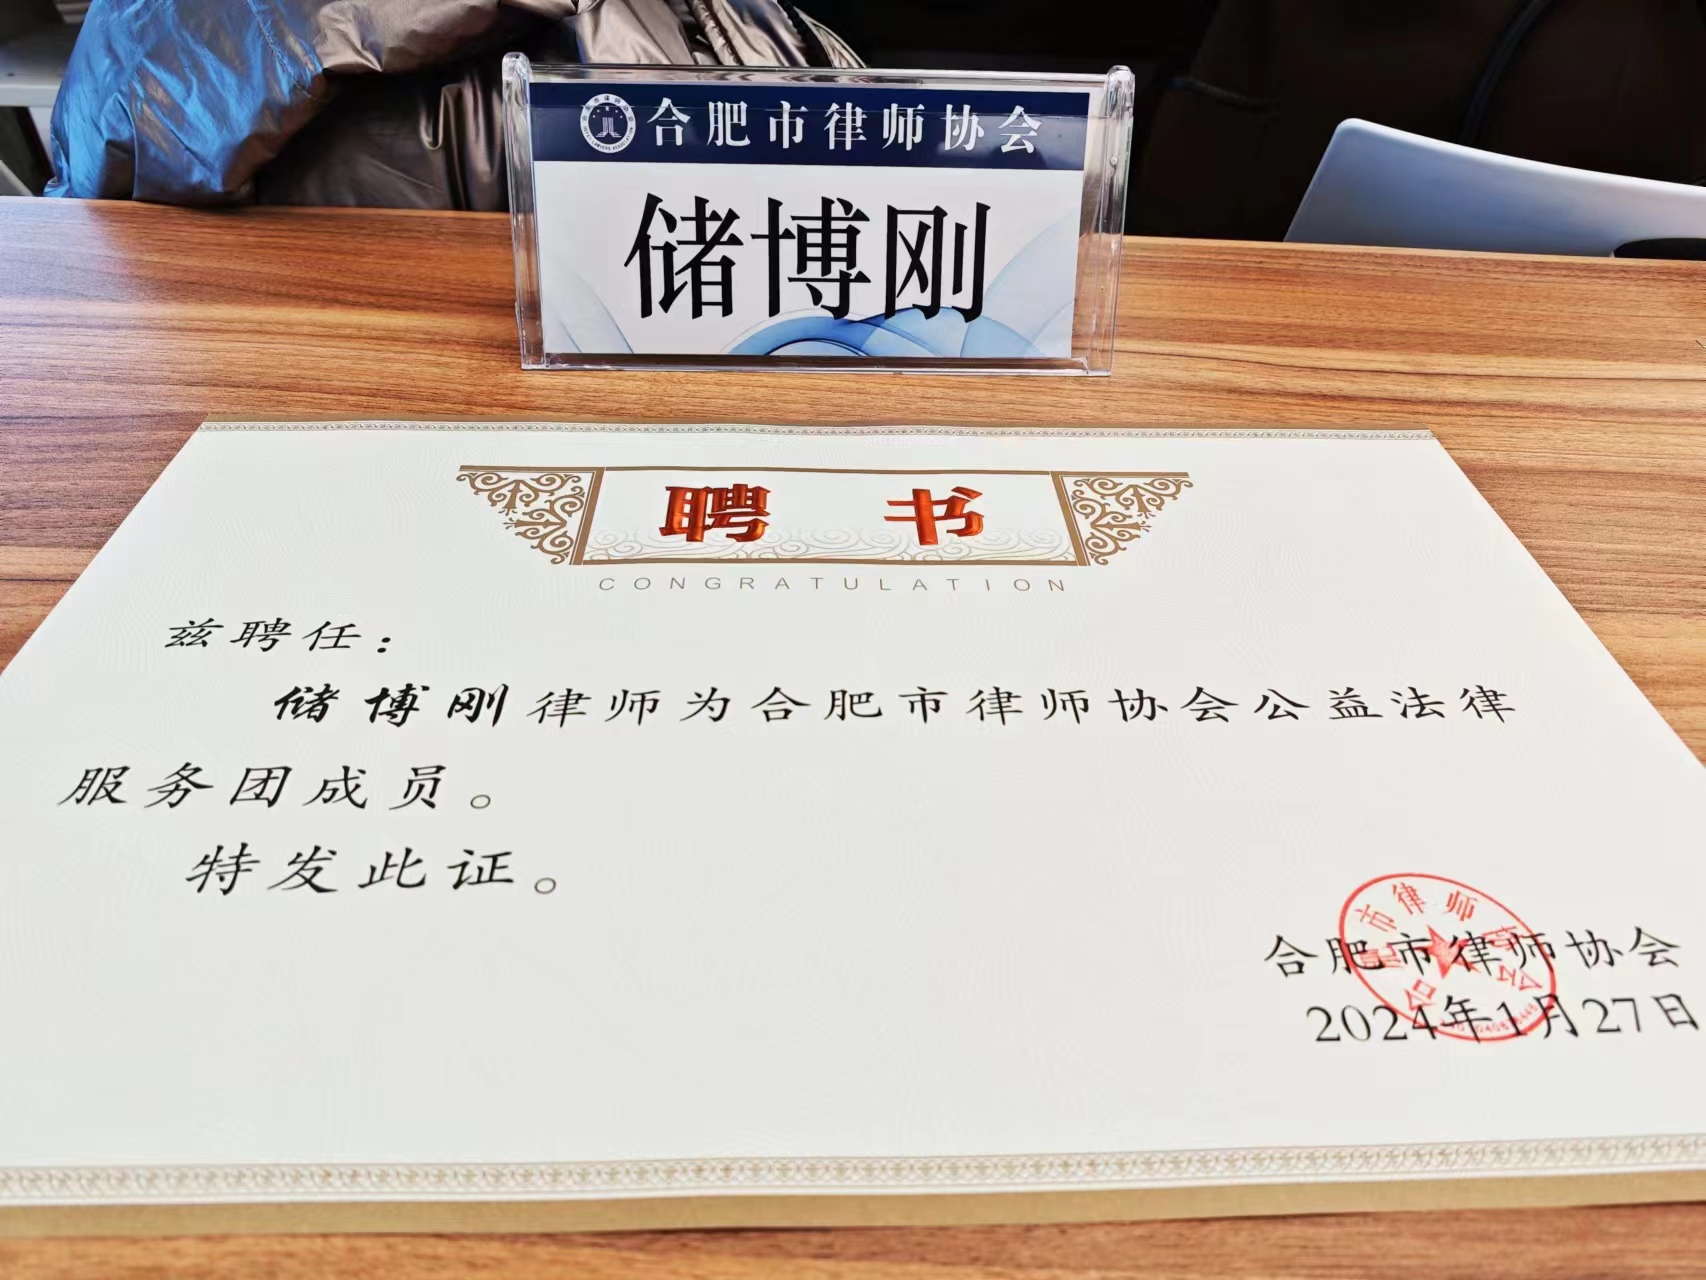 合肥市律师协会
储博刚
聘书
CONGRATULATION
兹聘任：
储博刚律师为合肥市律师协会公益法律
服务团成员。
特发此证。
合肥市律师协会
2024年1月27日
合肥市律师协会